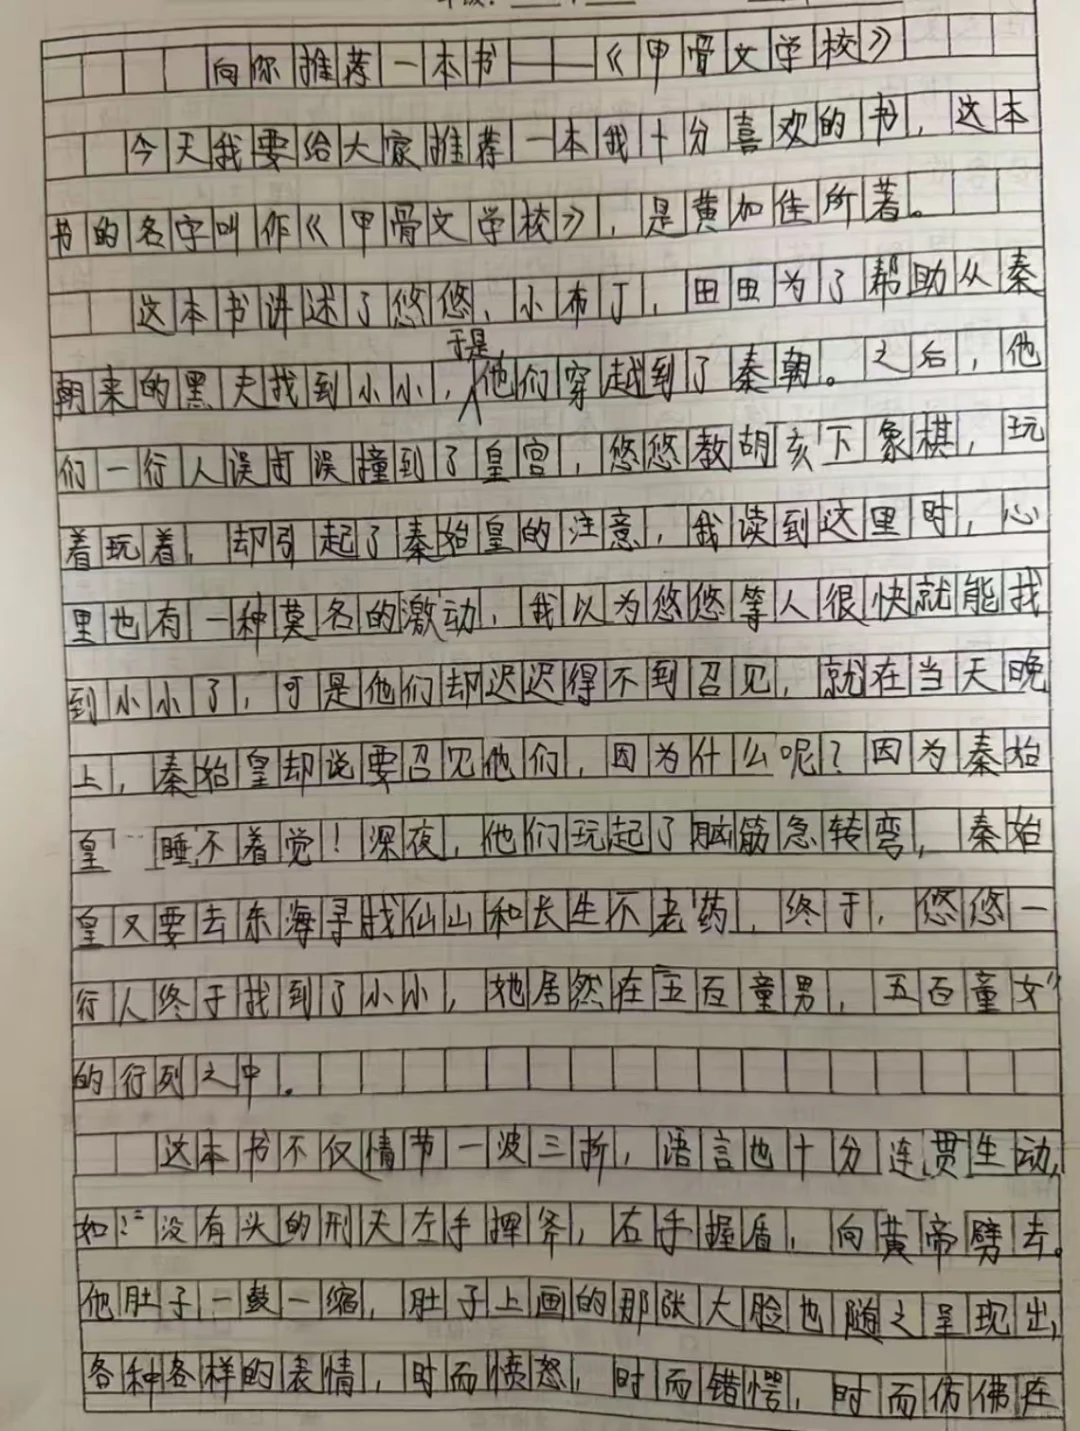 向你推荐一本书——《甲骨文学校》
今天我要给大家推荐一本我十分喜欢的书，这本
书的名字叫作《甲骨文学校》，是黄加佳所著。
这本书讲述了悠悠、小布丁、田田为了帮助从秦
于是，
朝来的黑夫找到小小，他们穿越到了秦朝。之后，他
们一行人误打误撞到了皇宫，悠悠教胡亥下象棋，玩
着玩着，却引起了秦始皇的注意，我读到这里时，心
里也有一种莫名的激动，我以为悠悠等人很快就能找
到小小了，可是他们却迟迟得不到召见，就在当天晚
上，秦始皇却说要召见他们，因为什么呢？因为秦始
皇睡不着觉！深夜，他们玩起了脑筋急转弯，秦始
皇又要去东海寻找仙山和长生不老药，终于，悠悠一
行人终于找到了小小，她居然在五百童男，五百童女
的行列之中。
这本书不仅情节一波三折，语言也十分连贯生动，
如：“没有头的刑天左手挥斧，右手握盾，向黄帝劈去。
他肚子一鼓一缩，肚子上画的那张大脸也随之呈现出，
各种各样的表情，时而愤怒，时而错愕，时而仿佛在